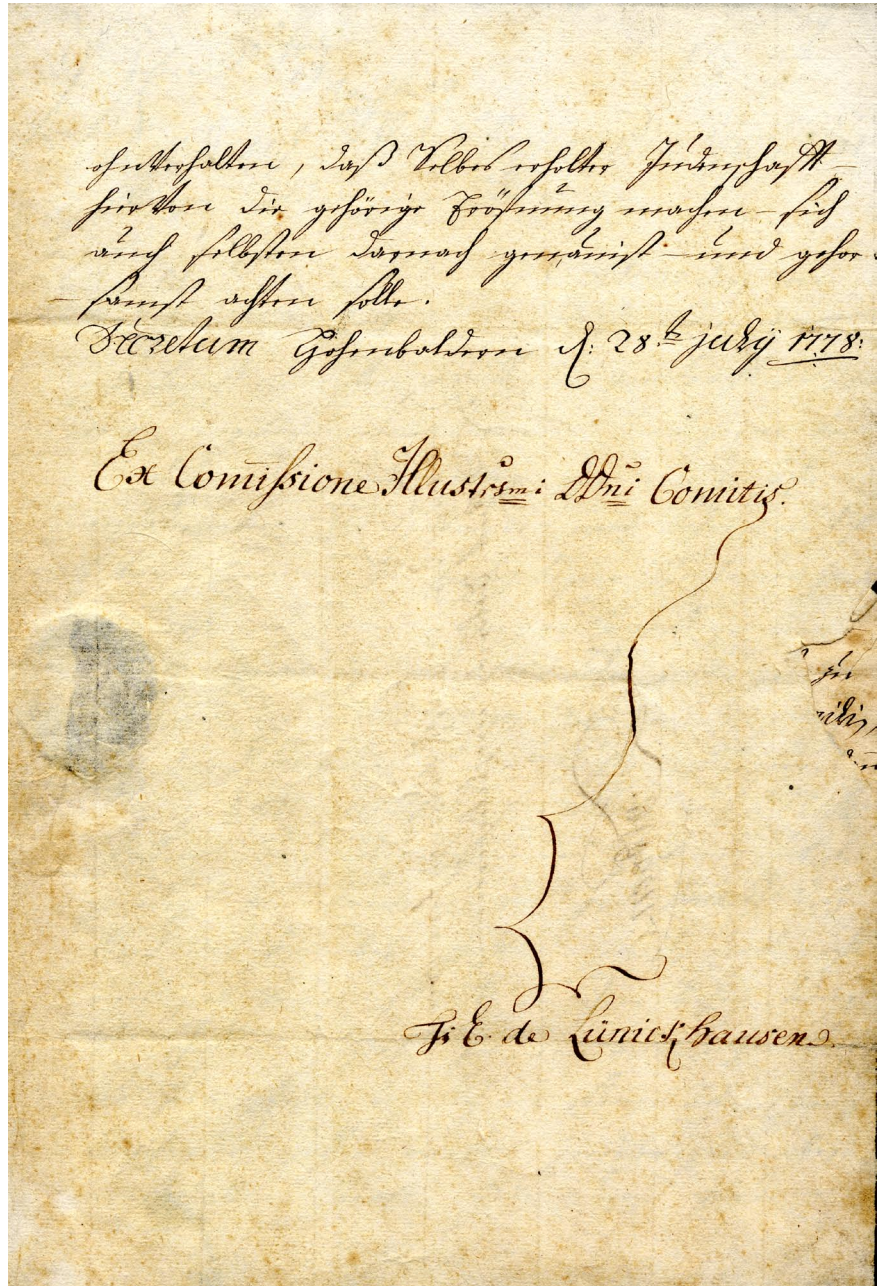 ohnverhalten, daß Selbes erholter Judenschafft
hiervon die gehörige Eröfnung machen - sich
auch selbsten darnach gemänist - und gehor-
- samst achten solle.
Decretum Hohenbaldern d: 28t july 1778:
Ex Com̅issione Illustrsmi DDni Comitis.
zu
de Lünickhausen